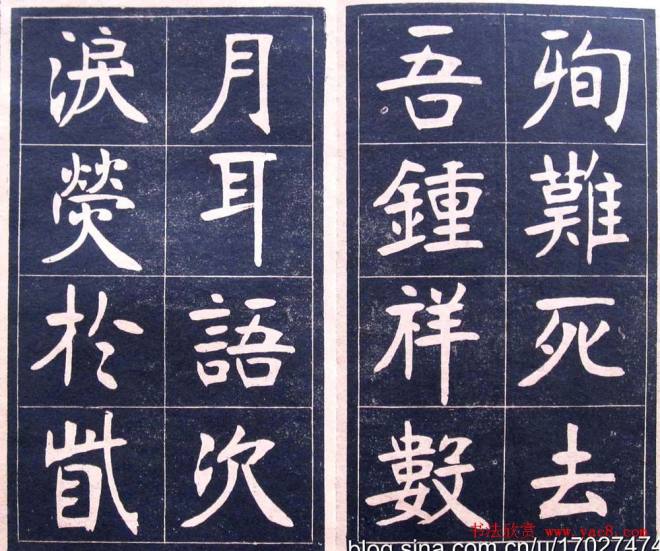 殉難死去
吾鍾祥數
月耳語次
淚熒於眥
书法欣赏 www.yac8.com
blog.sina.com.cn/u/17027474